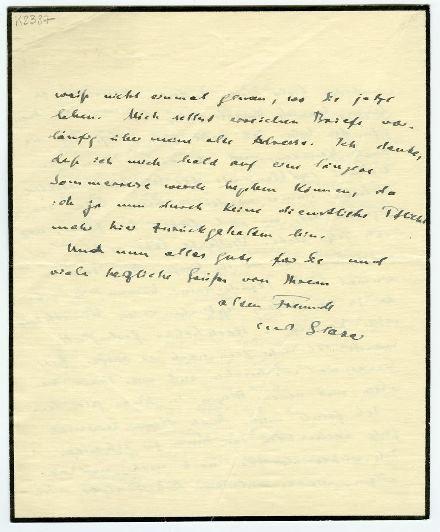 K2337
weiß nicht einmal genau, wo Sie jetzt
leben. Mich selbst erreichen Briefe vor-
läufig über meine alte Adresse. Ich denke,
daß ich mich bald auf eine längere
Sommerreise werde begeben können, da
ich ja nun durch keine dienstliche Pflicht
mehr hier zurückgehalten bin.
Und nun alles gute für Sie und
viele herzliche Grüße von Ihrem
alten Freunde